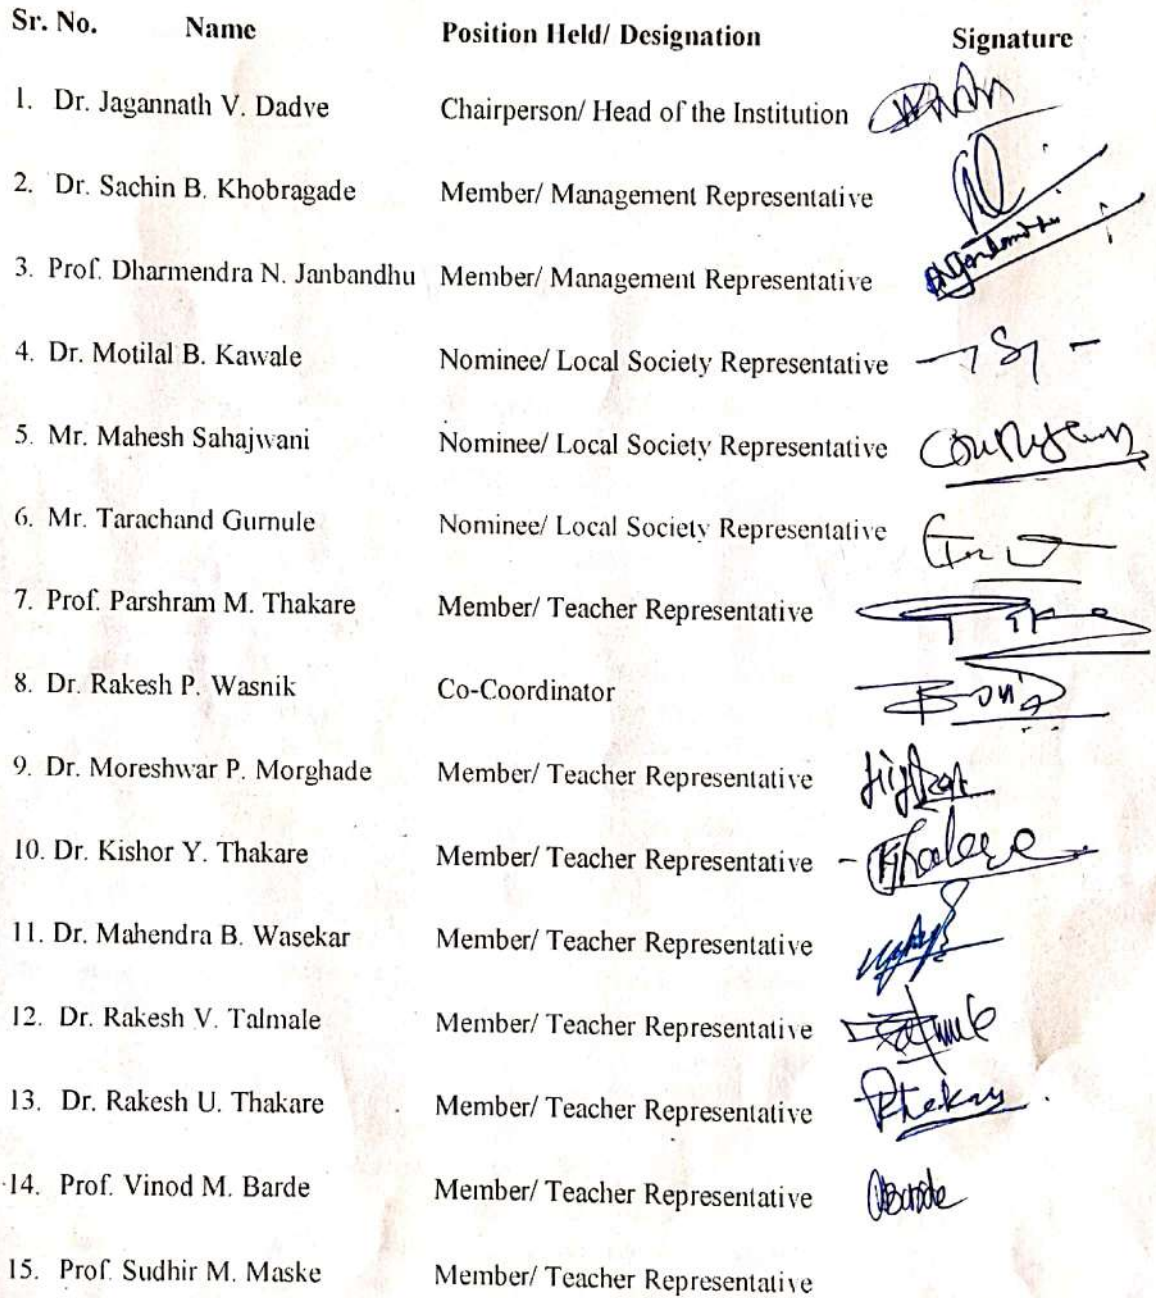 Sr. No. Name Position Held/ Designation Signature
1. Dr. Jagannath V. Dadve Chairperson/ Head of the Institution
2. Dr. Sachin B. Khobragade Member/ Management Representative
3. Prof. Dharmendra N. Janbandhu Member/ Management Representative
4. Dr. Motilal B. Kawale Nominee/ Local Society Representative
5. Mr. Mahesh Sahajwani Nominee/ Local Society Representative
6. Mr. Tarachand Gurnule Nominee/ Local Society Representative
7. Prof. Parshram M. Thakare Member/ Teacher Representative
8. Dr. Rakesh P. Wasnik Co-Coordinator
9. Dr. Moreshwar P. Morghade Member/ Teacher Representative
10. Dr. Kishor Y. Thakare Member/ Teacher Representative
11. Dr. Mahendra B. Wasekar Member/ Teacher Representative
12. Dr. Rakesh V. Talmale Member/ Teacher Representative
13. Dr. Rakesh U. Thakare Member/ Teacher Representative
14. Prof. Vinod M. Barde Member/ Teacher Representative
15. Prof. Sudhir M. Maske Member/ Teacher Representative